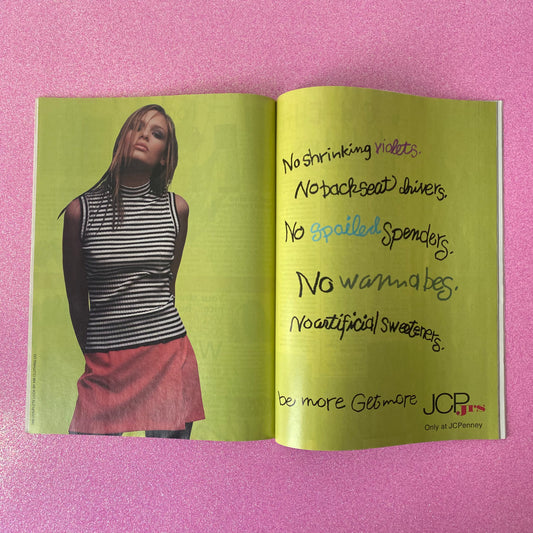 No shrinking violets.
No backseat drivers.
No spoiled spenders.
No wannabes.
No artificial sweeteners.
be more Get more
JCP Jrs
Only at JCPenney